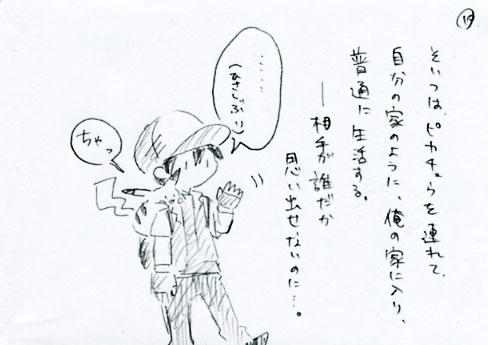 ⑲
そいつは、ピカチュウを連れて、
自分の家のように、俺の家に入り、
普通に生活する。
――相手が誰だか
思い出せないのに…。
……
(ひさしぶり)
ちゃっ